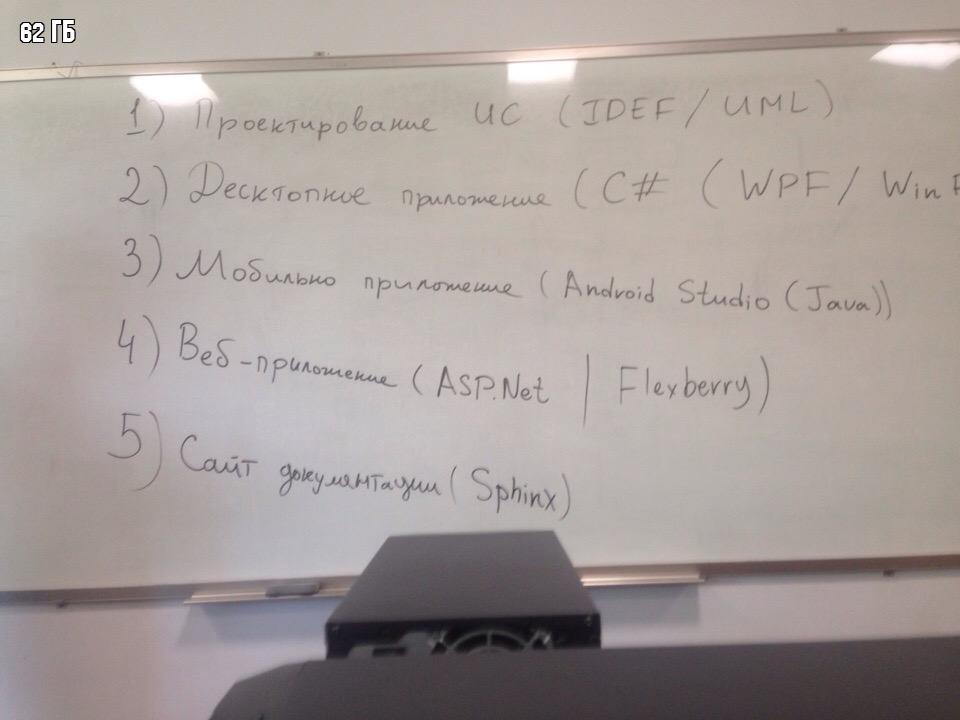 82 ГБ
1) Проектирование ИС (IDEF / UML)
2) Десктопное приложение (C# (WPF / Win F
3) Мобильно приложение (Android Studio (Java))
4) Веб-приложение (ASP.Net | Flexberry)
5) Сайт документации (Sphinx)